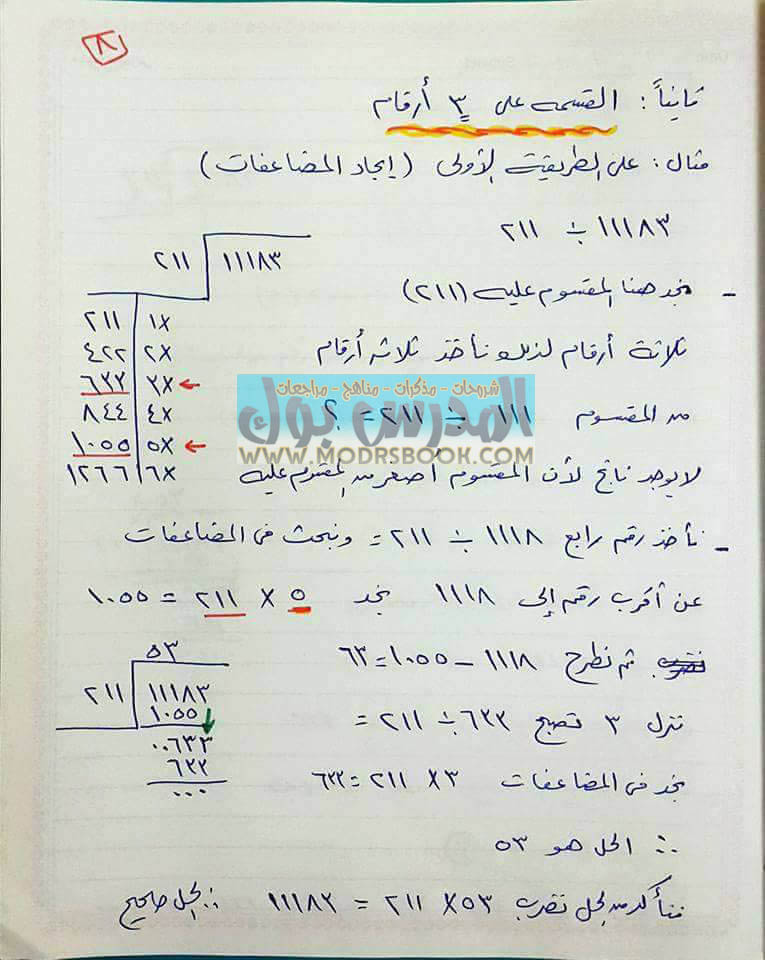 ٨
ثانياً: القسمة على ٣ أرقام
مثال: على الطريقة الأولى (إيجاد المضاعفات)
١١١٨٣ ÷ ٢١١
٢١١ ١١١٨٣
- نجد هنا المقسوم عليه (٢١١)
٢١١ ١X
٤٢٢ ٢X
٦٣٣ ٣X
٨٤٤ ٤X
١٠٥٥ ٥X
١٢٦٦ ٦X
ثلاثة أرقام لذلك نأخذ ثلاثة أرقام
من المقسوم ١١١ ÷ ٢١١ = ؟
شروحات - مذكرات - مناهج - مراجعات
المدرس بوك
WWW.MODRSBOOK.COM
لا يوجد ناتج لأن المقسوم أصغر من المقسوم عليه
- نأخذ رقم رابع ١١١٨ ÷ ٢١١ = ونبحث فى المضاعفات
عن أقرب رقم إلى ١١١٨ نجد ٥ X ٢١١ = ١٠٥٥
ثم نطرح ١١١٨ - ١٠٥٥ = ٦٣
ننزل ٣ تصبح ٦٣٣ ÷ ٢١١ =
نجد فى المضاعفات ٣ X ٢١١ = ٦٣٣
∴ الحل هو ٥٣
٥٣
٢١١ ١١١٨٣
١٠٥٥
٠٠٦٣٣
٦٣٣
٠٠٠
نتأكد من الحل نضرب ٥٣ X ٢١١ = ١١١٨٣ ∴ الحل صحيح